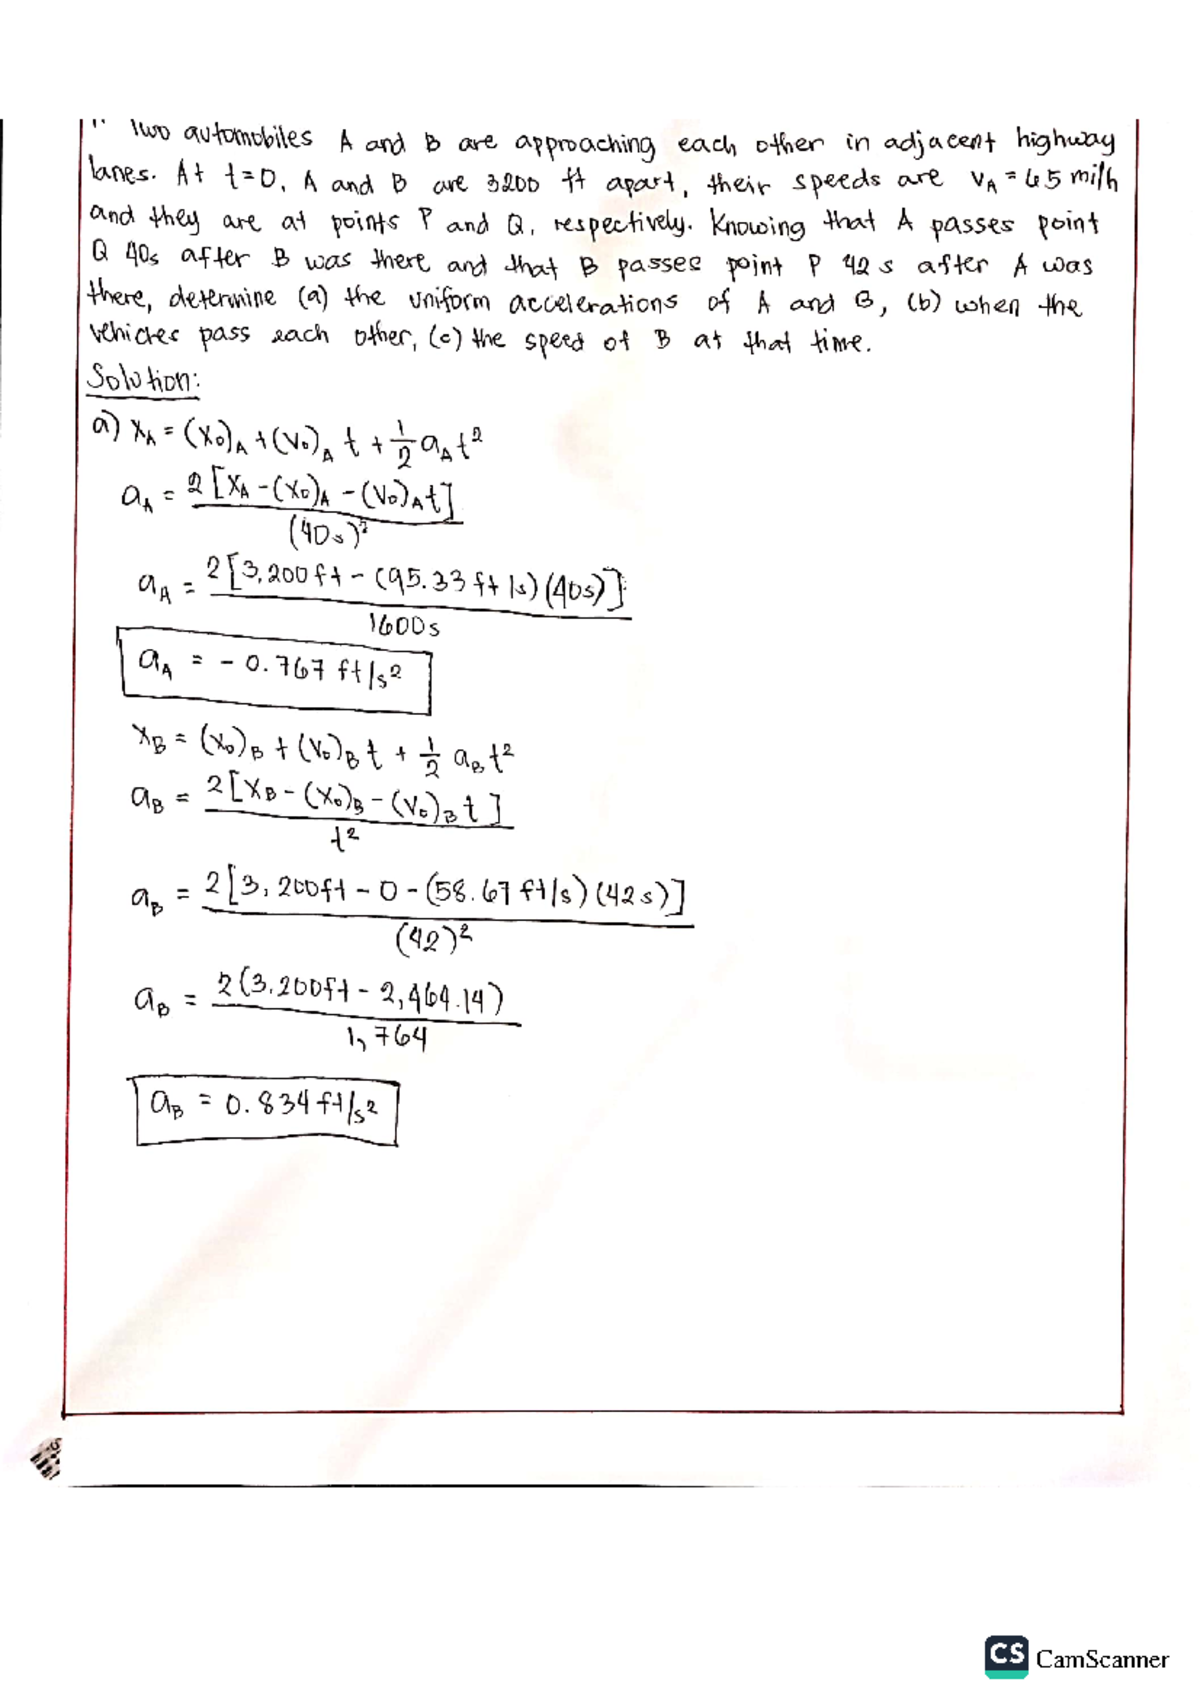 Two automobiles A and B are approaching each other in adjacent highway
lanes. At t=0, A and B are 3200 ft apart, their speeds are VA = 65 mi/h
and they are at points P and Q, respectively. Knowing that A passes point
Q 40s after B was there and that B passes point P 42 s after A was
there, determine (a) the uniform accelerations of A and B, (b) when the
vehicles pass each other, (c) the speed of B at that time.
Solution:
a) xA = (x0)A + (v0)A t + 1/2 aA t²
aA = 2[xA - (x0)A - (v0)A t] / (40s)²
aA = 2[3,200ft - (95.33 ft/s)(40s)] / 1600s
aA = - 0.767 ft/s²
xB = (x0)B + (v0)B t + 1/2 aB t²
aB = 2[xB - (x0)B - (v0)B t] / t²
aB = 2[3,200ft - 0 - (58.67 ft/s)(42s)] / (42)²
aB = 2(3,200ft - 2,464.14) / 1,764
aB = 0.834 ft/s²
CS CamScanner